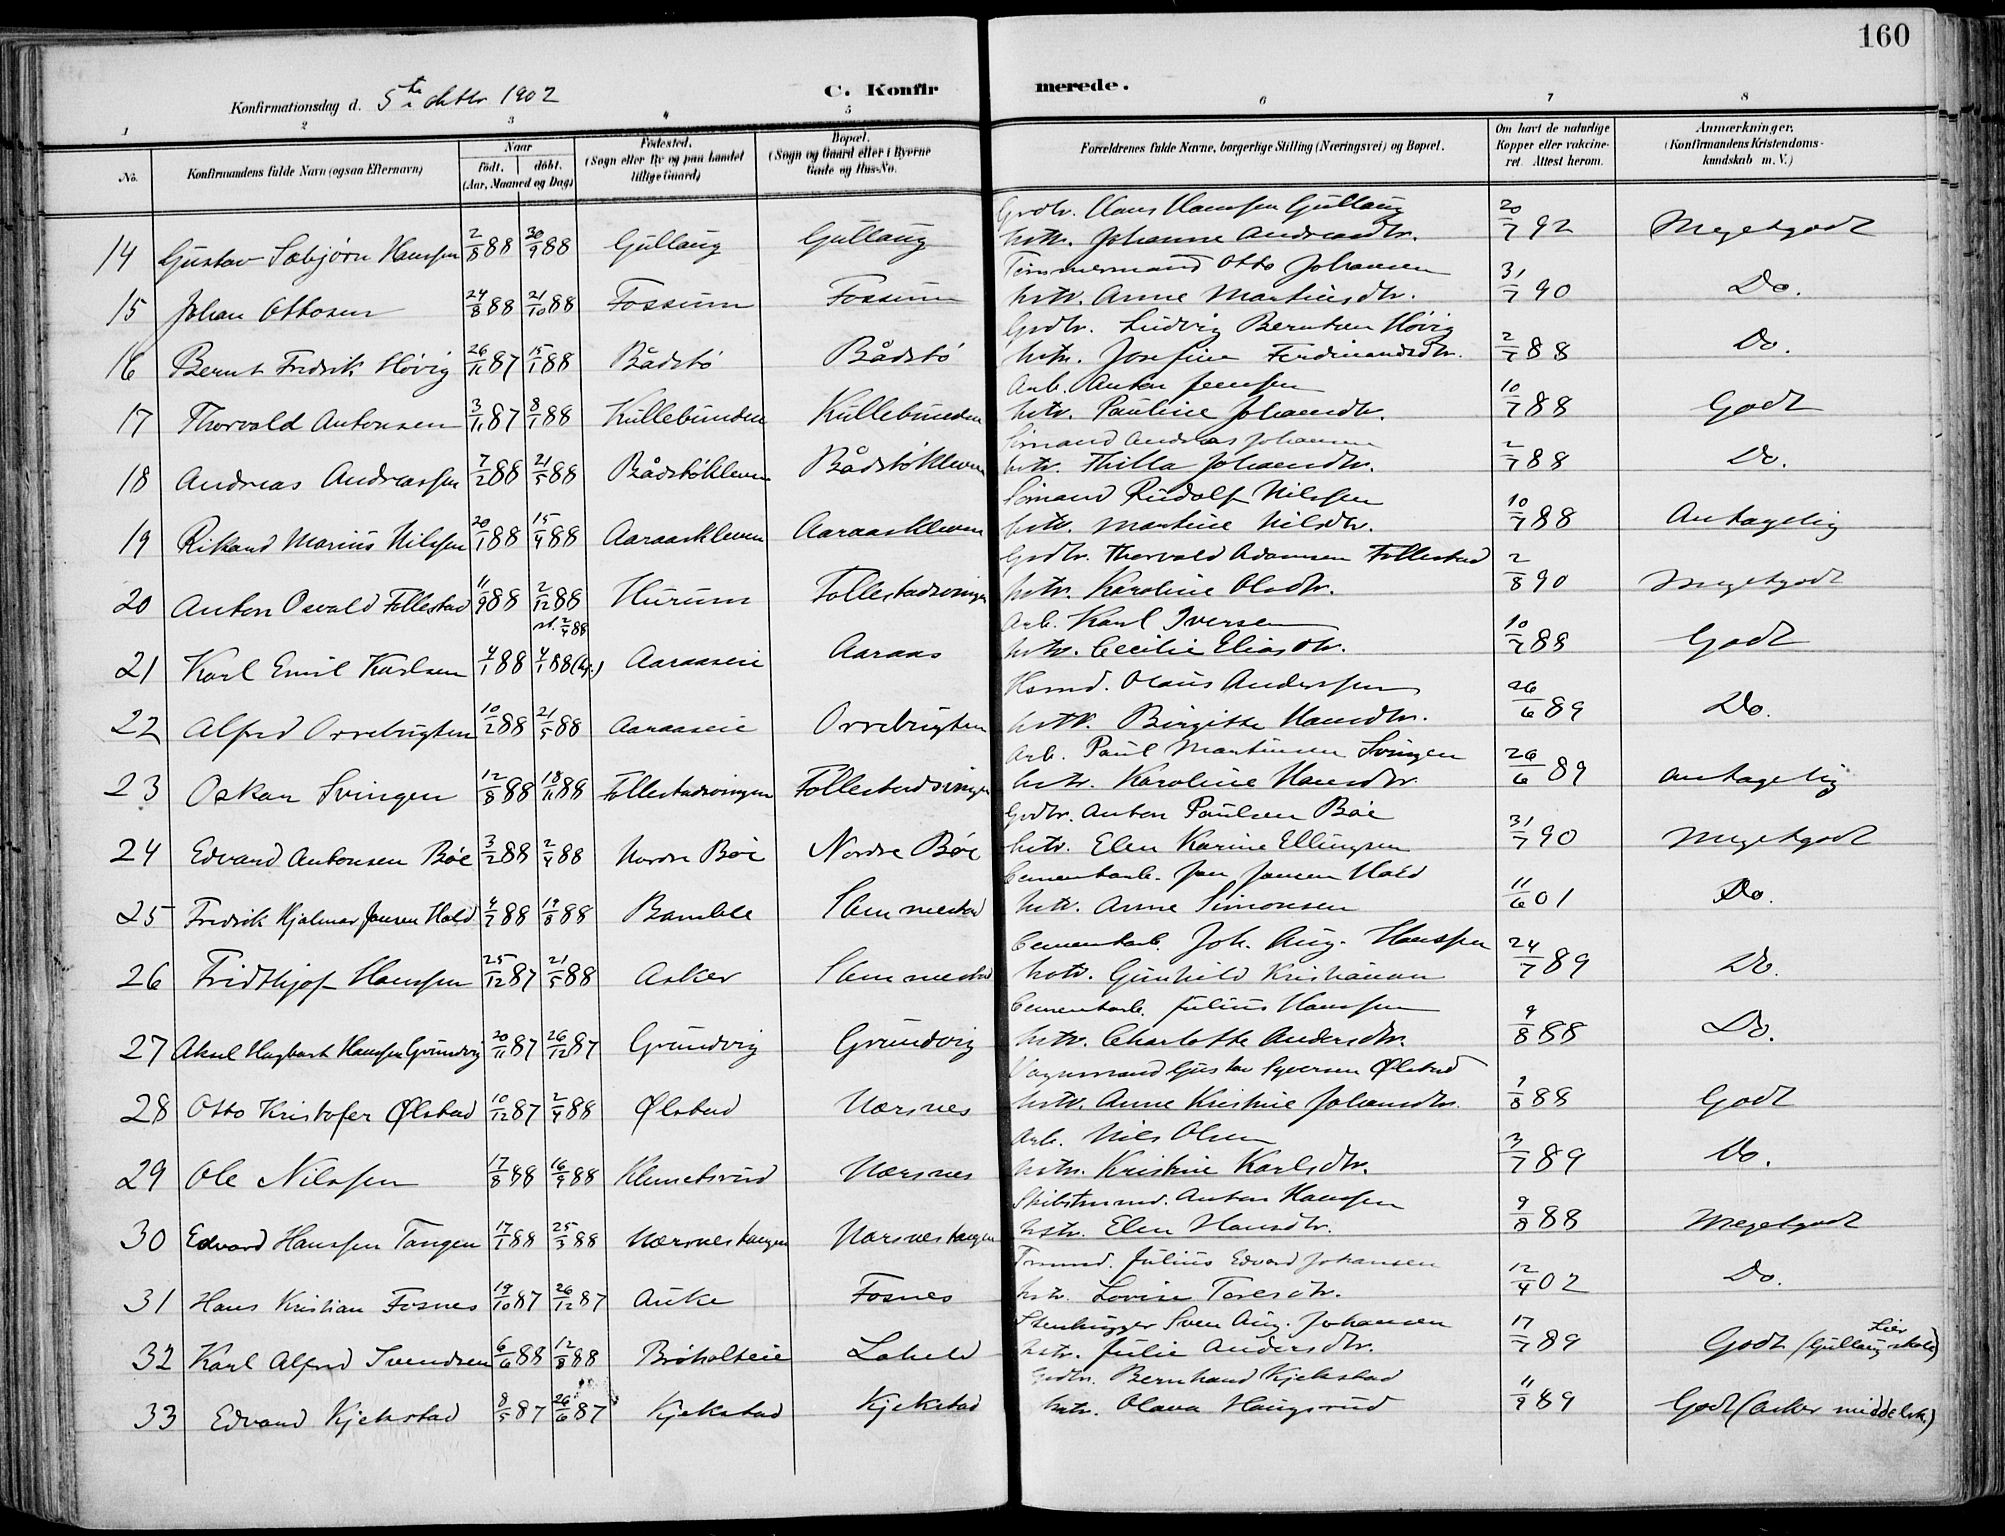 160
Konfirmationsdag d. 5te oktbr 1902
C. Konfirmerede.
1 2 3 4 5 6 7 8
No. Konfirmandens fulde Navn (ogsaa Efternavn) Naar født, døbt. (Aar, Maaned og Dag) Fødested. (Sogn eller By og paa Landet tillige Gaard) Bopæl. (Sogn og Gaard eller i Byerne Gade og Hus-No. Forældrenes fulde Navne, borgerlige Stilling (Næringsvei) og Bopæl. Om havt de naturlige Kopper eller vaccineret. Attest herom. Anmærkninger. (Konfirmandens Kristendomskundskab m. V.)
Grdbr. Hans Hanssen Gullaug
14 Gustav Sæbjørn Hanssen 2/8 88 30/9 88 Gullaug Gullaug hstr. Johanne Andreasdtr. 20/7 92 Megetgodt
Tømmermand Otto Johansen
15 Johan Ottosen 24/8 88 21/10 88 Fossum Fossum hstr. Anne Martinsdtr. 31/7 90 Do.
Grdbr. Ludvig Berntsen Høvig
16 Bernt Fredrik Høvig 26/11 87 15/1 88 Bådstø Bådstø hstr. Josefine Ferdinandsdtr. 2/7 88 Do.
Arb. Anton Jenssen
17 Thorvald Antonsen 3/11 87 8/1 88 Kullebunden Kullebunden hstr. Pauline Johansdtr. 10/7 88 Godt
Sømand Andreas Johansen
18 Andreas Andreassen 7/2 88 21/5 88 Bådstøkleven Bådstøkleven hstr. Thilla Johansdtr. 2/7 88 Do.
Sømand Rudolf Nilssen
19 Rikard Marius Nilssen 20/1 88 15/4 88 Aaraaskleven Aaraaskleven hstr. Martine Nilsdtr. 10/7 88 Antagelig
Grdbr. Thorvald Adamsen Follestad
20 Anton Osvald Follestad 11/9 88 2/12 88 Hurum Follestadsvingen hstr. Karoline Olsdtr. 2/8 90 Megetgodt
st. 2/4 88 Arb. Karl Iversen
21 Karl Emil Karlsen 4/1 88 4/1 88 (hj.) Aaraaseie Aaraas hstr. Cecilie Eliasdtr. 10/7 88 Godt
Hsmd. Olaus Anderssen
22 Alfred Orrebrigten 10/2 88 21/5 88 Aaraaseie Orrebrigten hstr. Birgitte Hansdtr. 26/6 89 Do.
Arb. Paul Martinsen Svingen
23 Oskar Svingen 12/8 88 18/11 88 Follestadsvingen Follestadsvingen hstr. Karoline Hansdtr. 26/6 89 Antagelig
Grdbr. Anton Paulsen Bøe
24 Edvard Antonsen Bøe 3/2 88 2/4 88 Nordre Bøe Nordre Bøe hstr. Elen Karine Ellingsen 31/7 90 Megetgodt
Cementarb. Jan Jansen Hald
25 Fredrik Hjalmar Jansen Hald 4/7 88 19/8 88 Bamble Slemmestad hstr. Anne Simonsen 11/6 01 Do.
Cementarb. Joh. Aug. Hanssen
26 Fridthjof Hanssen 25/12 87 21/5 88 Asker Slemmestad hstr. Gunhild Kristiansen 24/7 89 Do.
Cementarb. Julius Hanssen
27 Aksel Hagbart Hanssen Grundvig 20/11 87 26/12 87 Grundvig Grundvig hstr. Charlotte Andersdtr. 9/8 88 Do.
Vognmand Gustav Syversen Ølstad
28 Otto Kristofer Ølstad 10/12 87 2/4 88 Ølstad Nærsnes hstr. Anne Kristine Johansdtr. 9/8 88 Godt
Arb. Nils Olsen
29 Ole Nilssen 17/8 88 16/9 88 Klemetsrud Nærsnes hstr. Kristine Karlsdtr. 3/7 89 Do.
Skibstmmd. Anton Hanssen
30 Edvard Hanssen Tangen 17/1 88 25/3 88 Nærsnestangen Nærsnestangen hstr. Elen Hansdtr. 9/8 88 Megetgodt
Tmmd. Julius Edvard Johansen
31 Hans Kristian Fosnes 19/10 87 26/12 87 Auke Fosnes hstr. Lovise Toresdtr. 12/4 02 Do.
Stenhugger Sven Aug. Johansen
32 Karl Alfred Svendsen 6/6 88 12/8 88 Brøholteie Laheld hstr. Julie Andersdtr. 17/7 89 Godt (Gullaug skole) Lier
Grdbr. Bernhard Kjekstad
33 Edvard Kjekstad 8/5 87 26/6 87 Kjekstad Kjekstad hstr. Olava Haugsrud 11/9 89 Godt (Asker middelsk.)